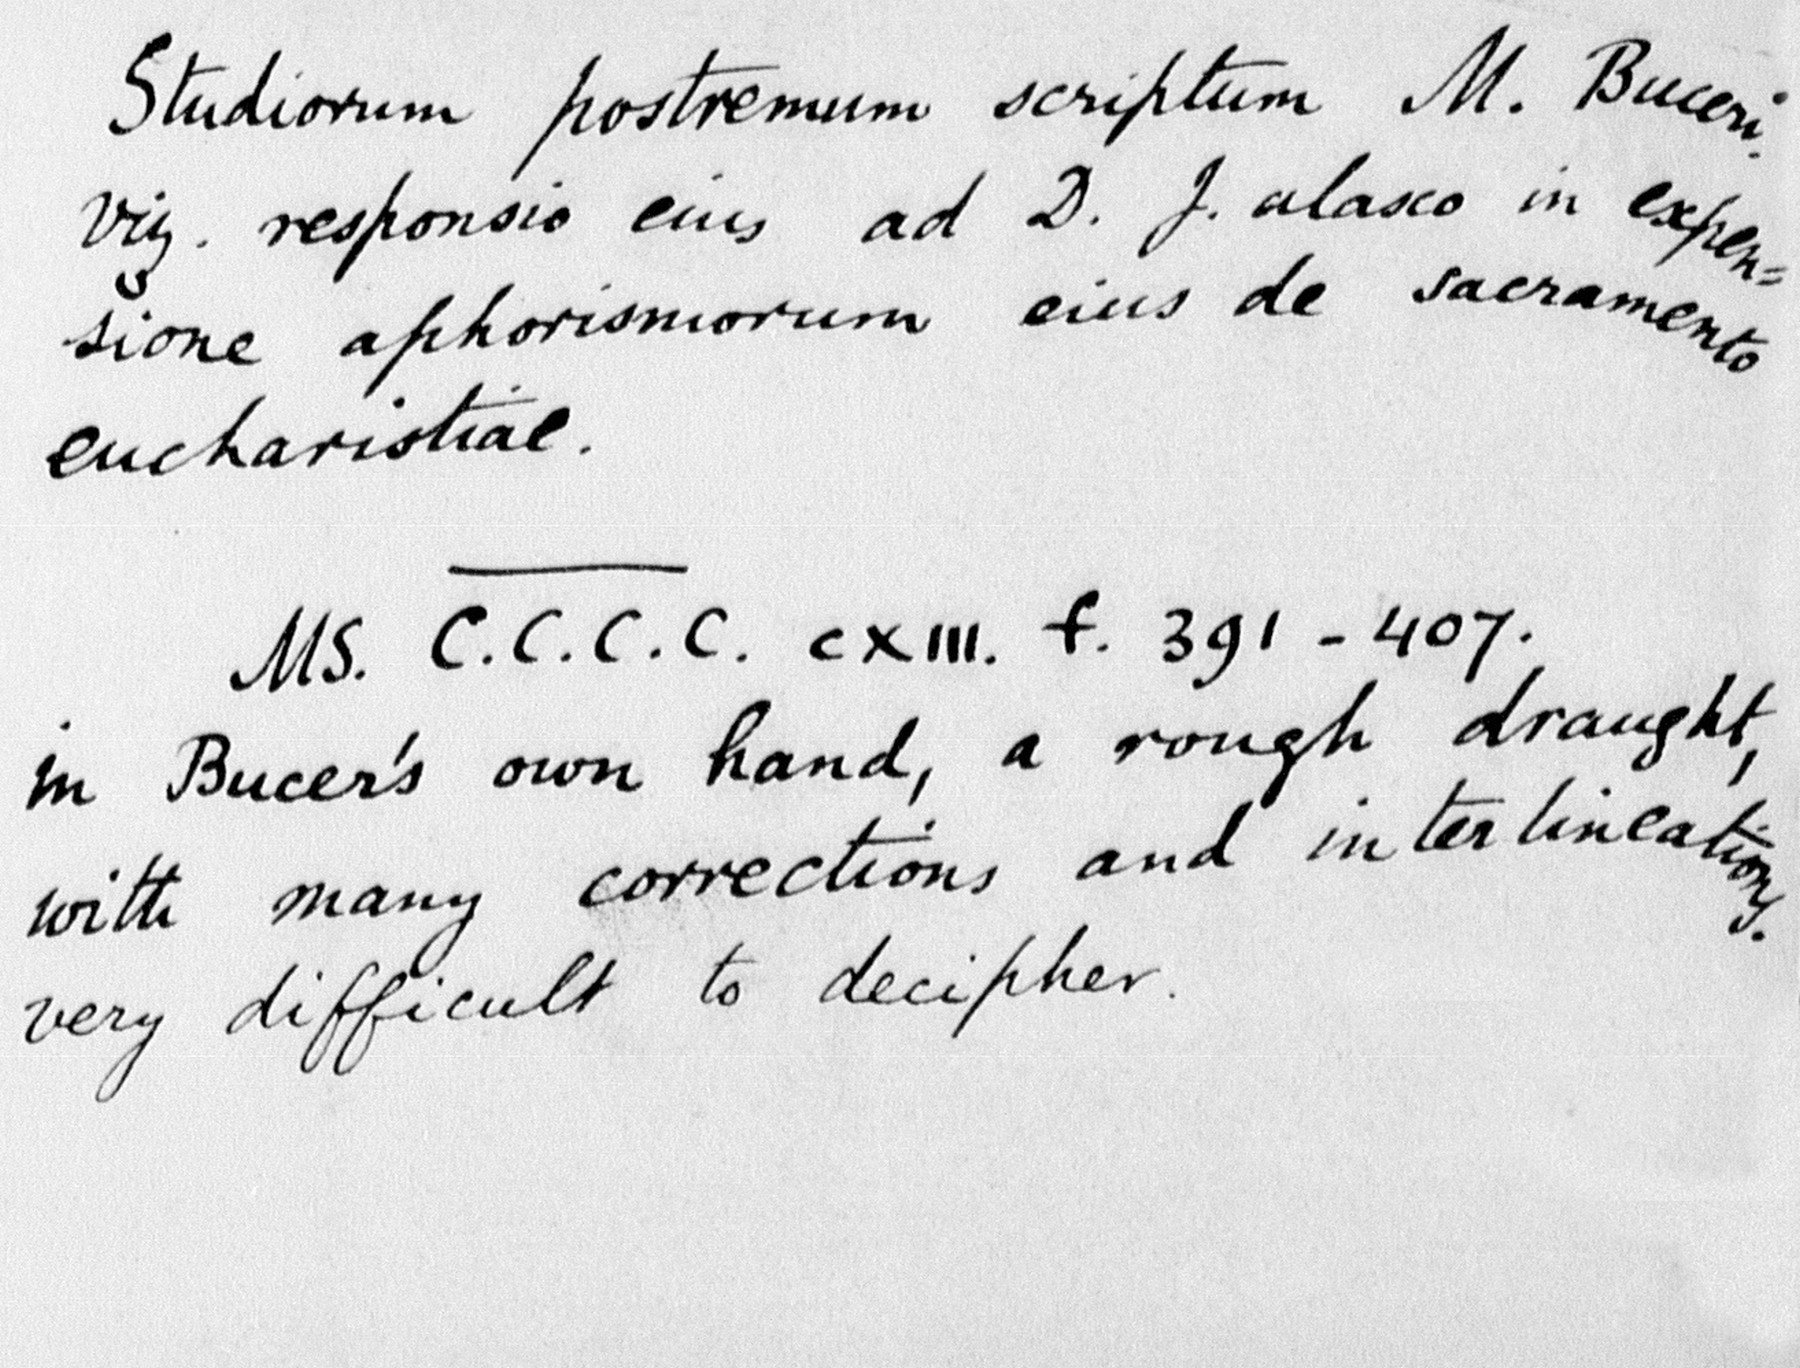 Studiorum postremum scriptum M. Buceri.
viz. responsio eius ad D. J. alasco in expen=
sione aphorismorum eius de sacramento
eucharistiae.
MS. C.C.C.C. CXIII. f. 391-407.
in Bucer's own hand, a rough draught,
with many corrections and interlineations.
very difficult to decipher.